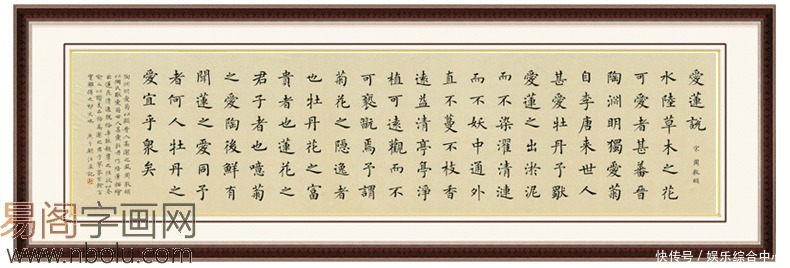 愛蓮說
宋 周敦頤
水陸草木之花
可愛者甚蕃晉
陶淵明獨愛菊
自李唐來世人
甚愛牡丹予獨
愛蓮之出淤泥
而不染濯清漣
而不妖中通外
直不蔓不枝香
遠益清亭亭淨
植可遠觀而不
可褻翫焉予謂
菊花之隱逸者
也牡丹花之富
貴者也蓮花之
君子者也噫菊
之愛陶後鮮有
聞蓮之愛同予
者何人牡丹之
愛宜乎衆矣
易阁字画网
www.nbolu.com
快传号／娱乐综合中心